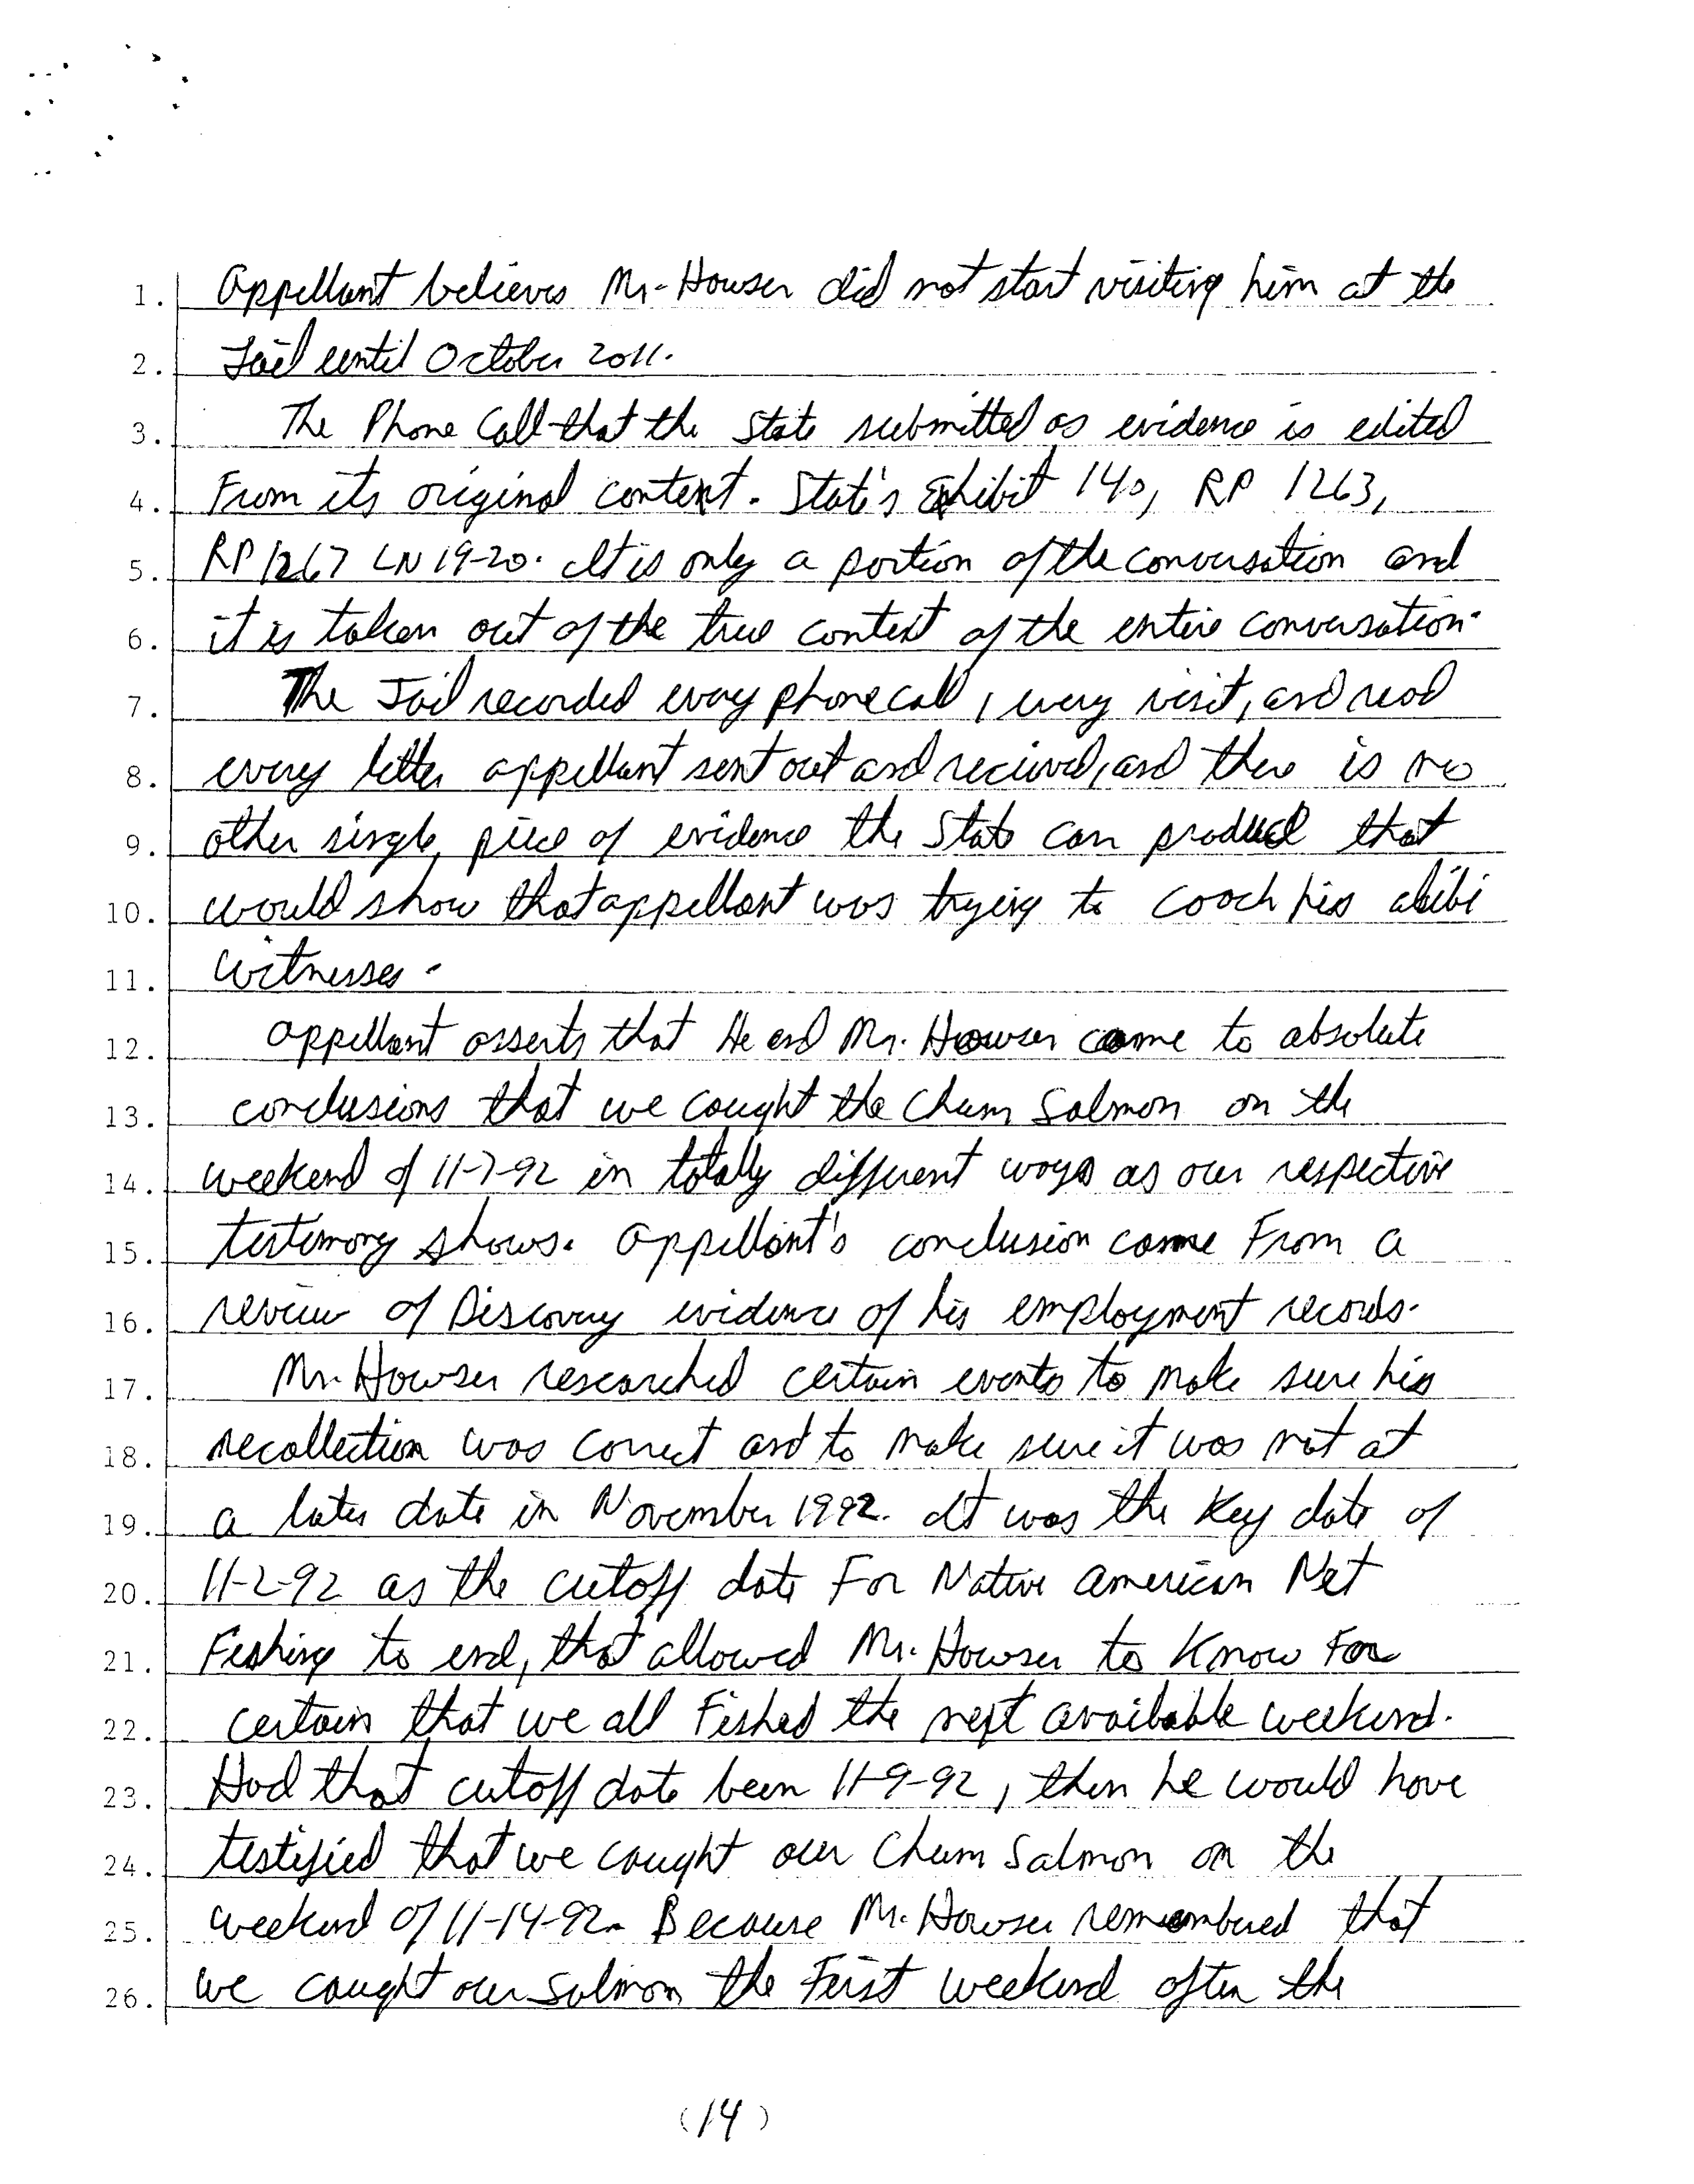 1. Appellant believes Mr. Howser did not start visiting him at the
2. Jail until October 2011.
3. The Phone Call that the State submitted as evidence is edited
4. From its original content. State's Exhibit 140, RP 1263,
5. RP 1267 LN 19-20. It is only a portion of the conversation and
6. it is taken out of the true context of the entire conversation.
7. The Jail recorded every phone call, every visit, and read
8. every letter appellant sent out and recieved, and there is no
9. other single, piece of evidence the State can produce that
10. would show that appellant was trying to coach his alibi
11. witnesses.
12. Appellant asserts that He and Mr. Howser came to absolute
13. conclusions that we caught the Chum Salmon on the
14. weekend of 11-7-92 in totally different ways as our respective
15. testimony shows. Appellant's conclusion came From a
16. review of Discovery evidence of his employment records.
17. Mr. Howser researched certain events to make sure his
18. recollection was correct and to make sure it was not at
19. a later date in November 1992. It was the Key date of
20. 11-2-92 as the cutoff date For Native American Net
21. Fishing to end, that allowed Mr. Howser to Know For
22. certain that we all Fished the next available weekend.
23. Had that cutoff date been 11-9-92, then he would have
24. testified that we caught our Chum Salmon on the
25. weekend of 11-14-92. Because Mr. Howser remembered that
26. we caught our salmon the First weekend after the
(14)